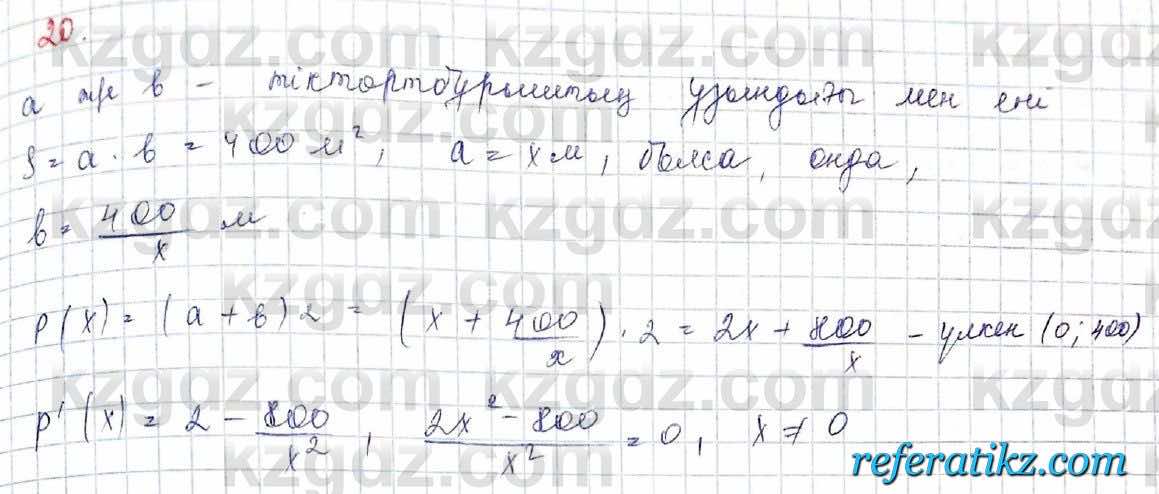 20.
а және в - тіктөртбұрыштың ұзындығы мен ені
S = a · b = 400 м², a = x м, болса, онда,
b = 400/x м
P(x) = (a + b) 2 = (x + 400/x) · 2 = 2x + 800/x - үлкен (0; 400)
P'(x) = 2 - 800/x², (2x² - 800)/x² = 0, x ≠ 0
referatikz.com
kzgdz.com